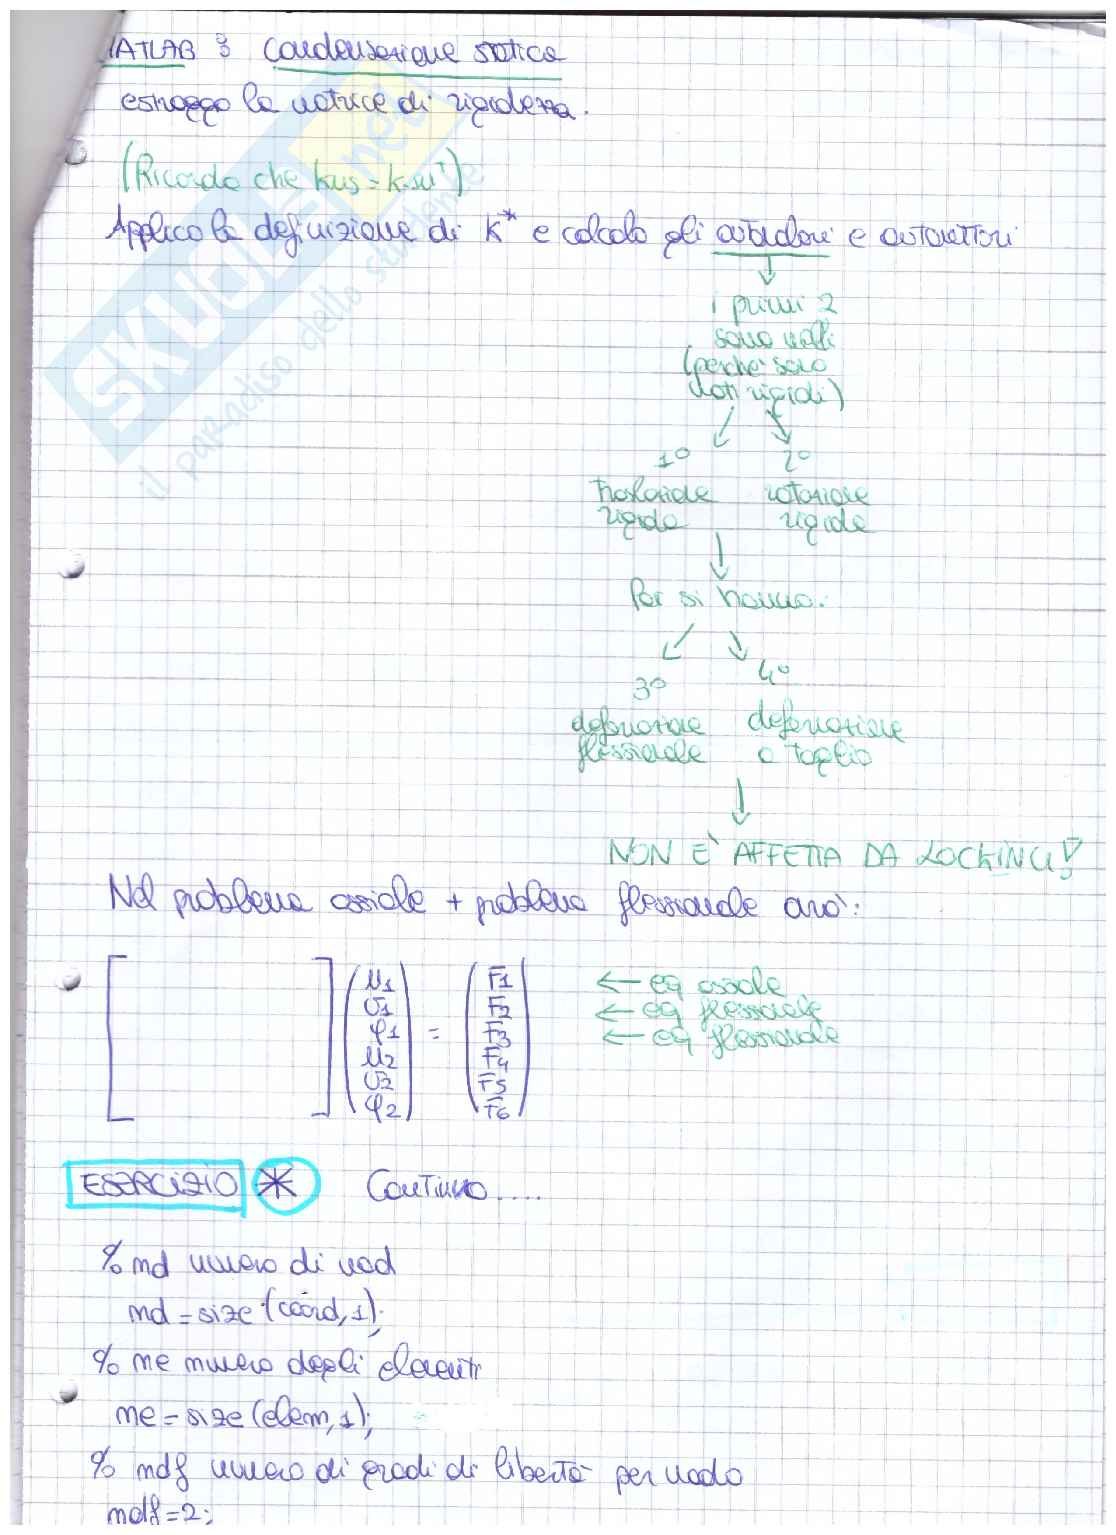 MATLAB : Condensazione statica
estraggo la matrice di rigidezza.
(Ricordo che kus = k.su^T)
Applico la definizione di K* e calcolo gli autovalori e autovettori
i primi 2
sono nulli
(perché sono
moti rigidi)
1° 2°
traslazione rotazione
rigida rigida
Poi si hanno:
3° 4°
deformazione deformazione
flessionale a taglio
NON E' AFFETTA DA LOCKING!
Nel problema assiale + problema flessionale avrò:
u1 F1 ← eq assiale
v1 F2 ← eq flessionale
φ1 = F3 ← eq flessionale
u2 F4
v2 F5
φ2 F6
ESERCIZIO * Continuo....
% nd numero di nodi
nd = size (coord,1);
% ne numero degli elementi
ne = size (elem,1);
% ndf numero di gradi di libertà per nodo
ndf = 2;
SKUOLA.net
il paradiso dello studente